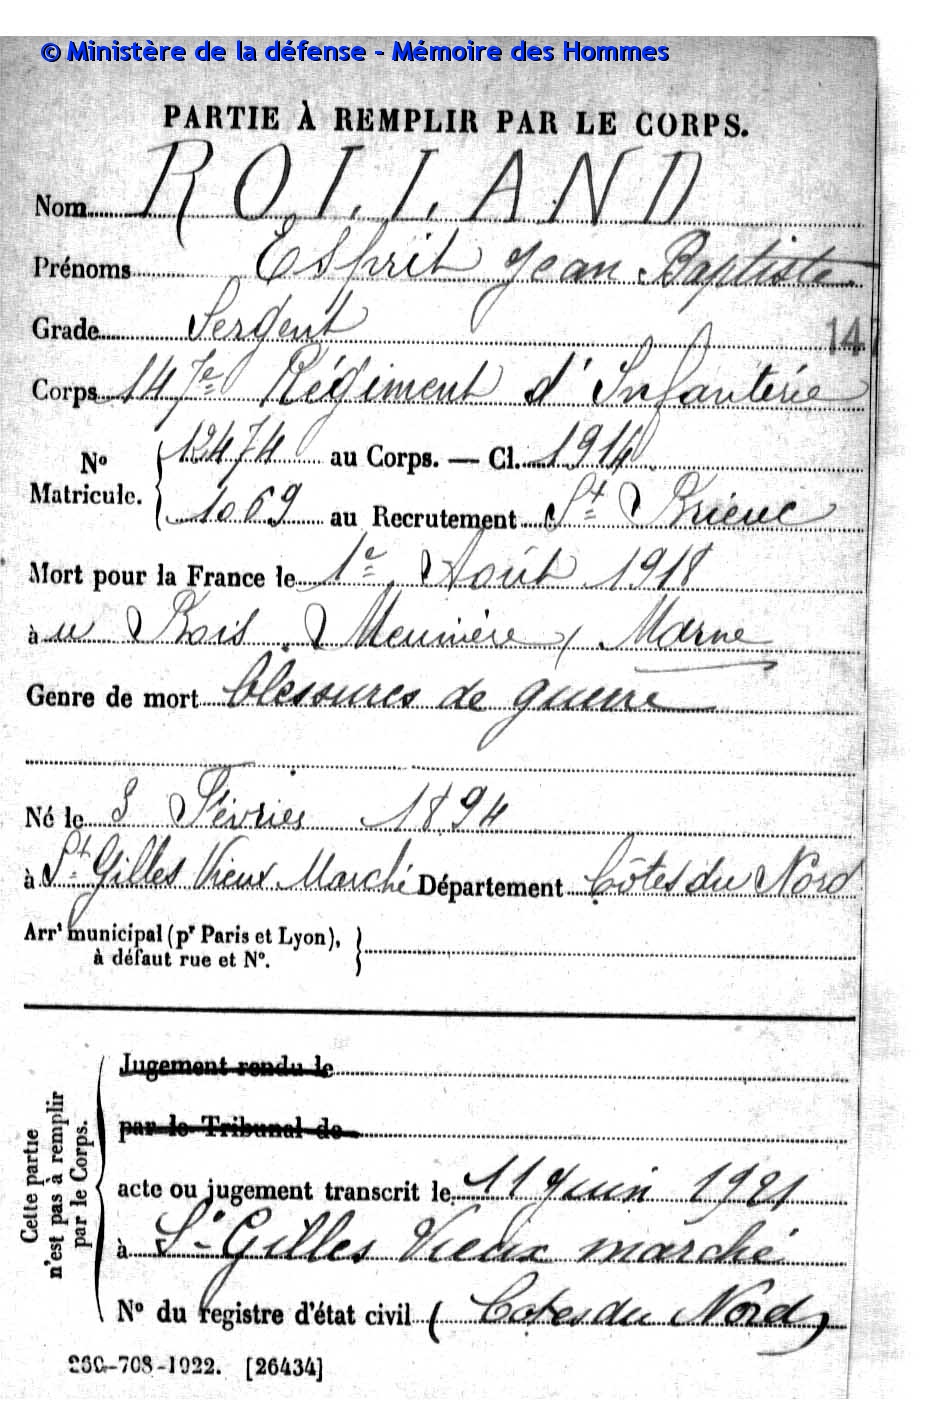 © Ministère de la défense - Mémoire des Hommes
PARTIE À REMPLIR PAR LE CORPS.
Nom ROLLAND
Prénoms Esprit Jean Baptiste
Grade Sergent 14
Corps 147e Régiment d'Infanterie
No Matricule. 12474 au Corps. — Cl. 1914
1069 au Recrutement St Brieuc
Mort pour la France le 1e Août 1918
à u Bois Meunière, Marne
Genre de mort blessures de guerre
Né le 3 Février 1894
à St Gilles Vieux Marché Département Côtes du Nord
Arrt municipal (pr Paris et Lyon),
à défaut rue et No.
Cette partie n'est pas à remplir par le Corps.
Jugement rendu le
par le Tribunal de
acte ou jugement transcrit le 11 Juin 1921
à St Gilles Vieux marché
No du registre d'état civil (Cotes du Nord)
260-708-1922. [26434]